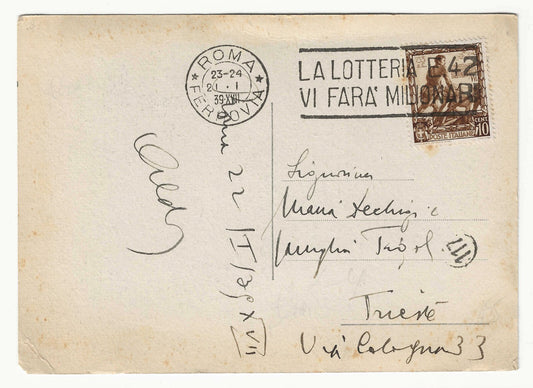 ROMA
FERROVIA
23-24
20 . I
39 XVII
LA LOTTERIA E 42
VI FARA' MILIONARI
POSTE ITALIANE
CENT 10
22/I/39 XVII
Signorina
Maria
famiglia
117
Trieste
Via Cologna 33